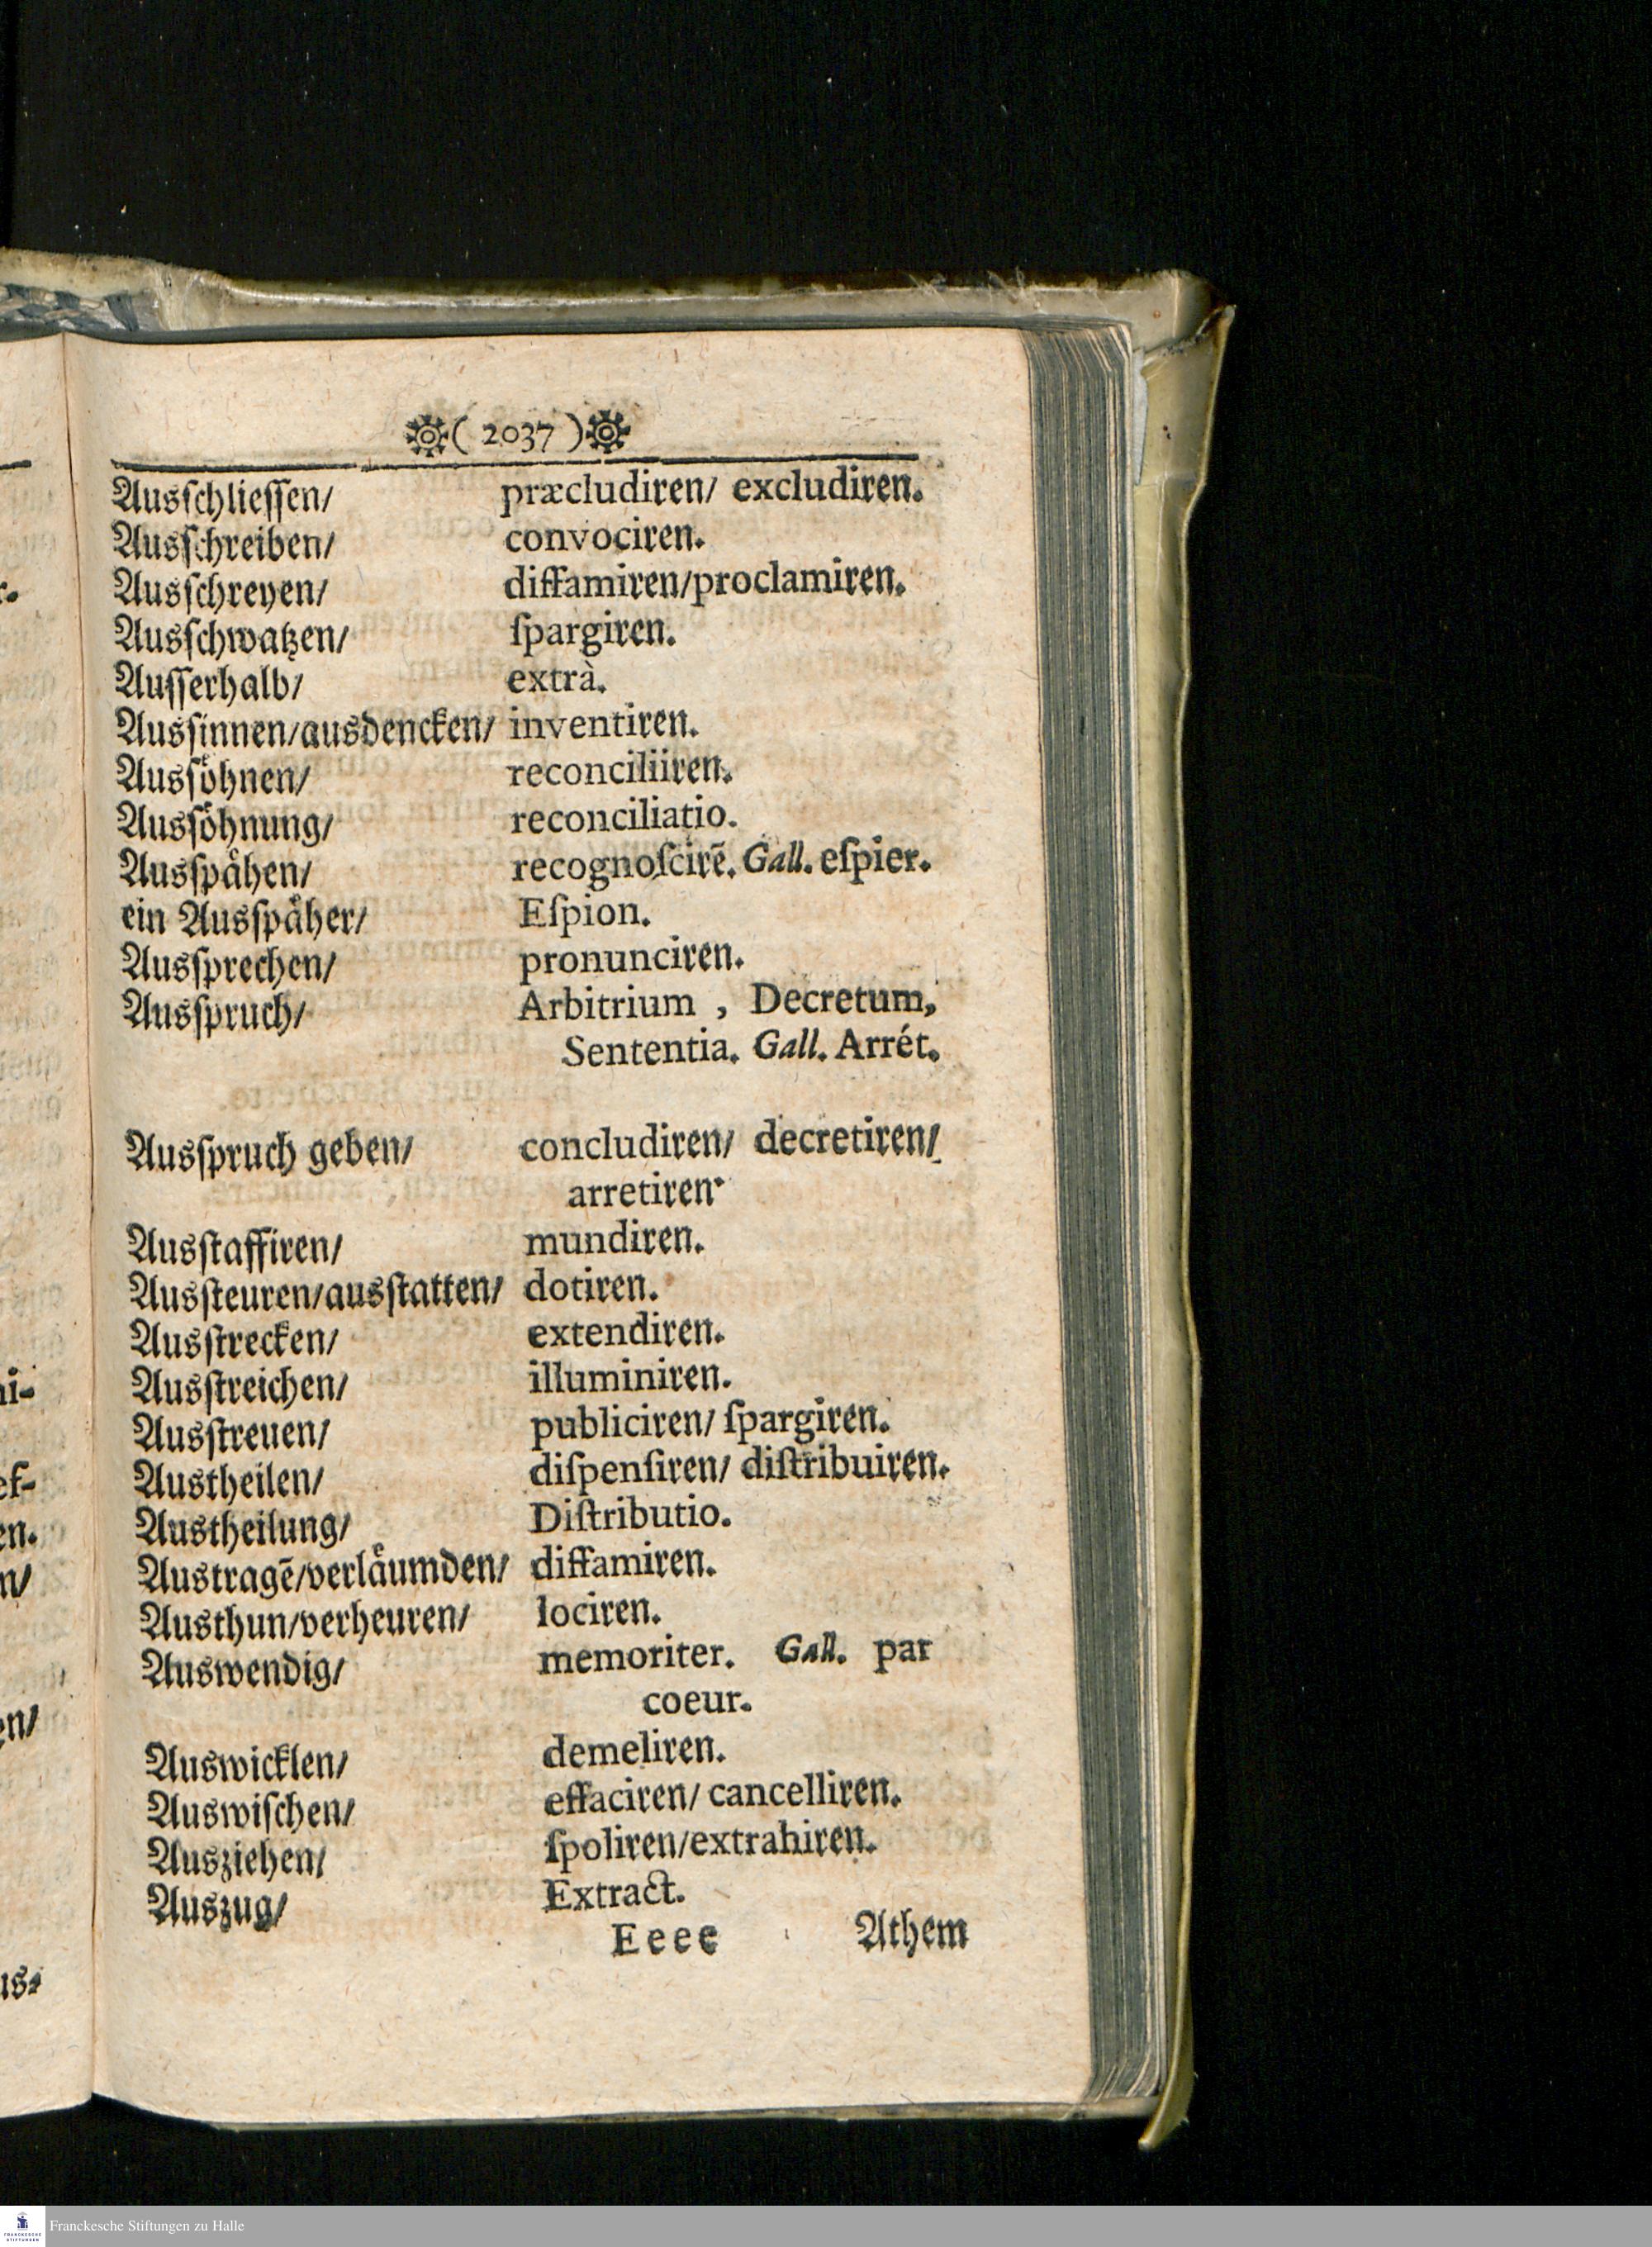 ( 2037 )
Ausſchlieſſen/ præcludiren/ excludiren.
Ausſchreiben/ convociren.
Ausſchreyen/ diffamiren/proclamiren.
Ausſchwatzen/ ſpargiren.
Auſſerhalb/ extrà.
Ausſinnen/ausdencken/ inventiren.
Ausſoͤhnen/ reconciliiren.
Ausſoͤhnung/ reconciliatio.
Ausſpaͤhen/ recognoſcirẽ. Gall. eſpier.
ein Ausſpaͤher/ Eſpion.
Ausſprechen/ pronunciren.
Ausſpruch/ Arbitrium , Decretum,
Sententia. Gall. Arrét.
Ausſpruch geben/ concludiren/ decretiren/
arretiren·
Ausſtaffiren/ mundiren.
Ausſteuren/ausſtatten/ dotiren.
Ausſtrecken/ extendiren.
Ausſtreichen/ illuminiren.
Ausſtreuen/ publiciren/ ſpargiren.
Austheilen/ diſpenſiren/ diſtribuiren.
Austheilung/ Diſtributio.
Austragẽ/verlaͤumden/ diffamiren.
Austhun/verheuren/ lociren.
Auswendig/ memoriter. Gall. par
coeur.
Auswicklen/ demeliren.
Auswiſchen/ effaciren/ cancelliren.
Ausziehen/ ſpoliren/extrahiren.
Auszug/ Extract.
Eeee Athem
Franckesche Stiftungen zu Halle